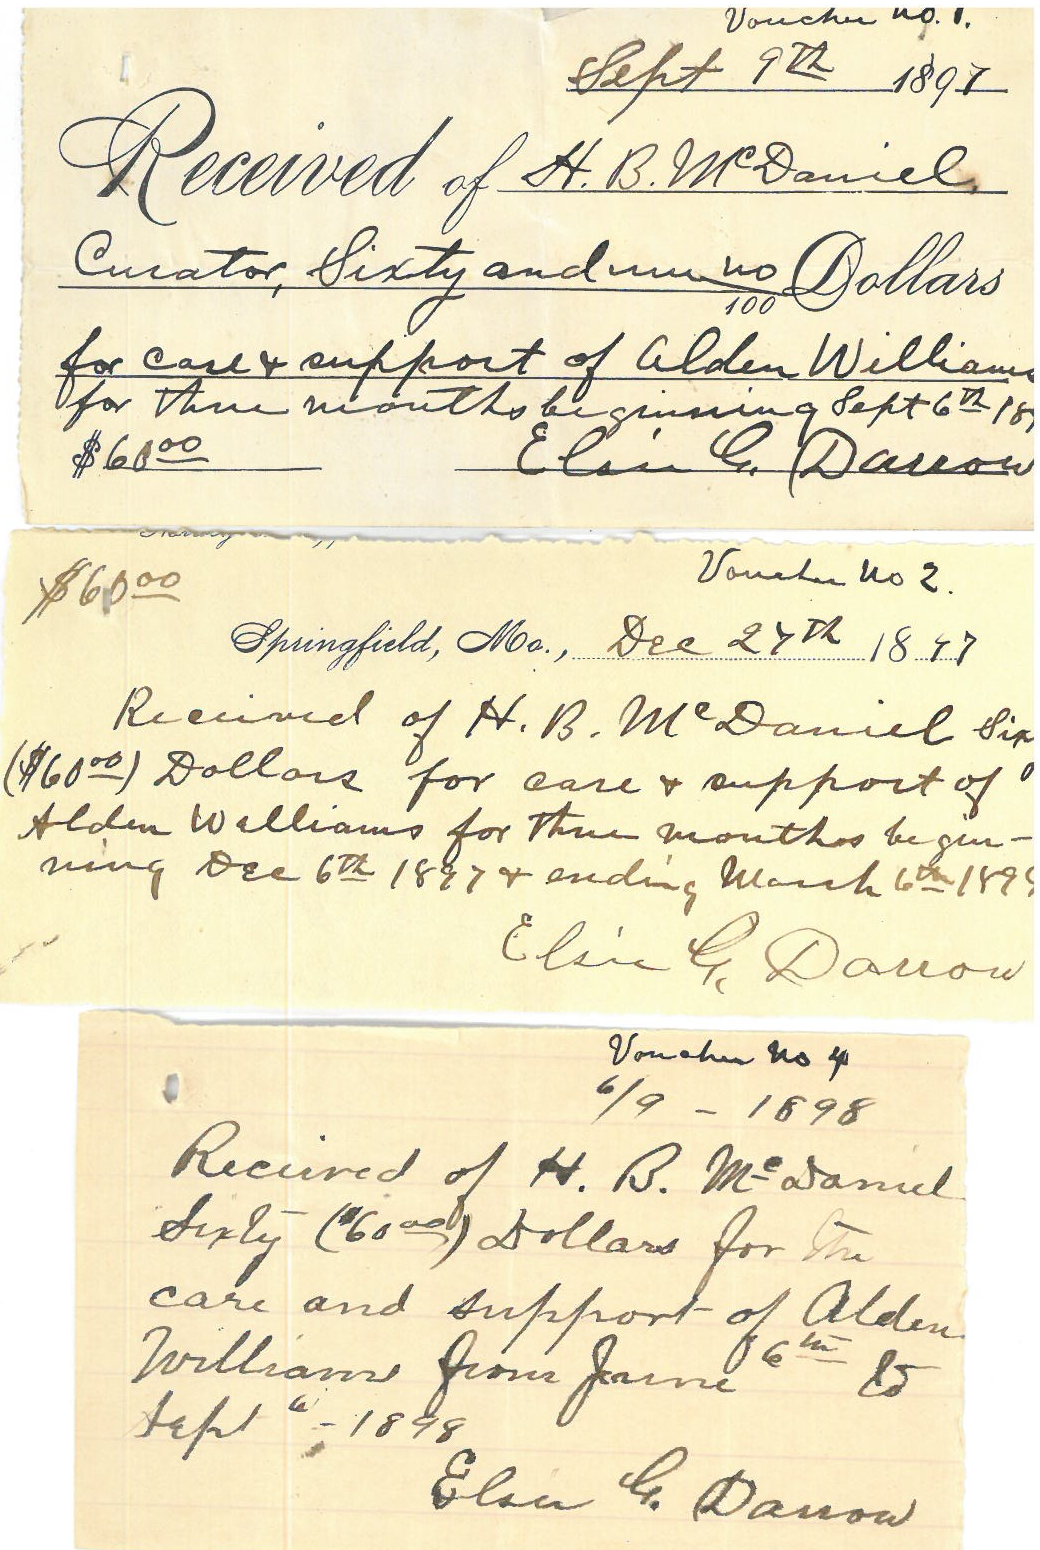 Voucher No. 1.
Sept 9th 1897
Received of H. B. McDaniel,
Curator, Sixty and no/100 Dollars
for care & support of Alden Williams
for three months beginning Sept 6th 189
$60.00 Elsie G. Darrow
$60.00
Voucher No 2.
Springfield, Mo., Dec 27th 1897
Received of H. B. McDaniel Six
($60.00) Dollars for care & support of
Alden Williams for three months begin-
ning Dec 6th 1897 & ending March 6th 1898
Elsie G. Darrow
Voucher No 4
6/9 - 1898
Received of H. B. McDaniel
Sixty ($60.00) Dollars for the
care and support of Alden
Williams from June 6th to
Sept 6 - 1898
Elsie G. Darrow